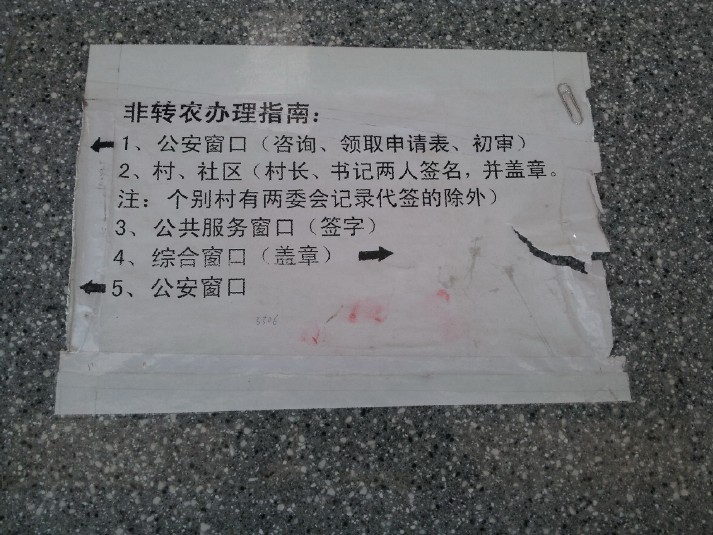 非转农办理指南:
1、公安窗口(咨询、领取申请表、初审)
2、村、社区(村长、书记两人签名,并盖章。
注:个别村有两委会记录代签的除外)
3、公共服务窗口(签字)
4、综合窗口(盖章)
5、公安窗口
3306